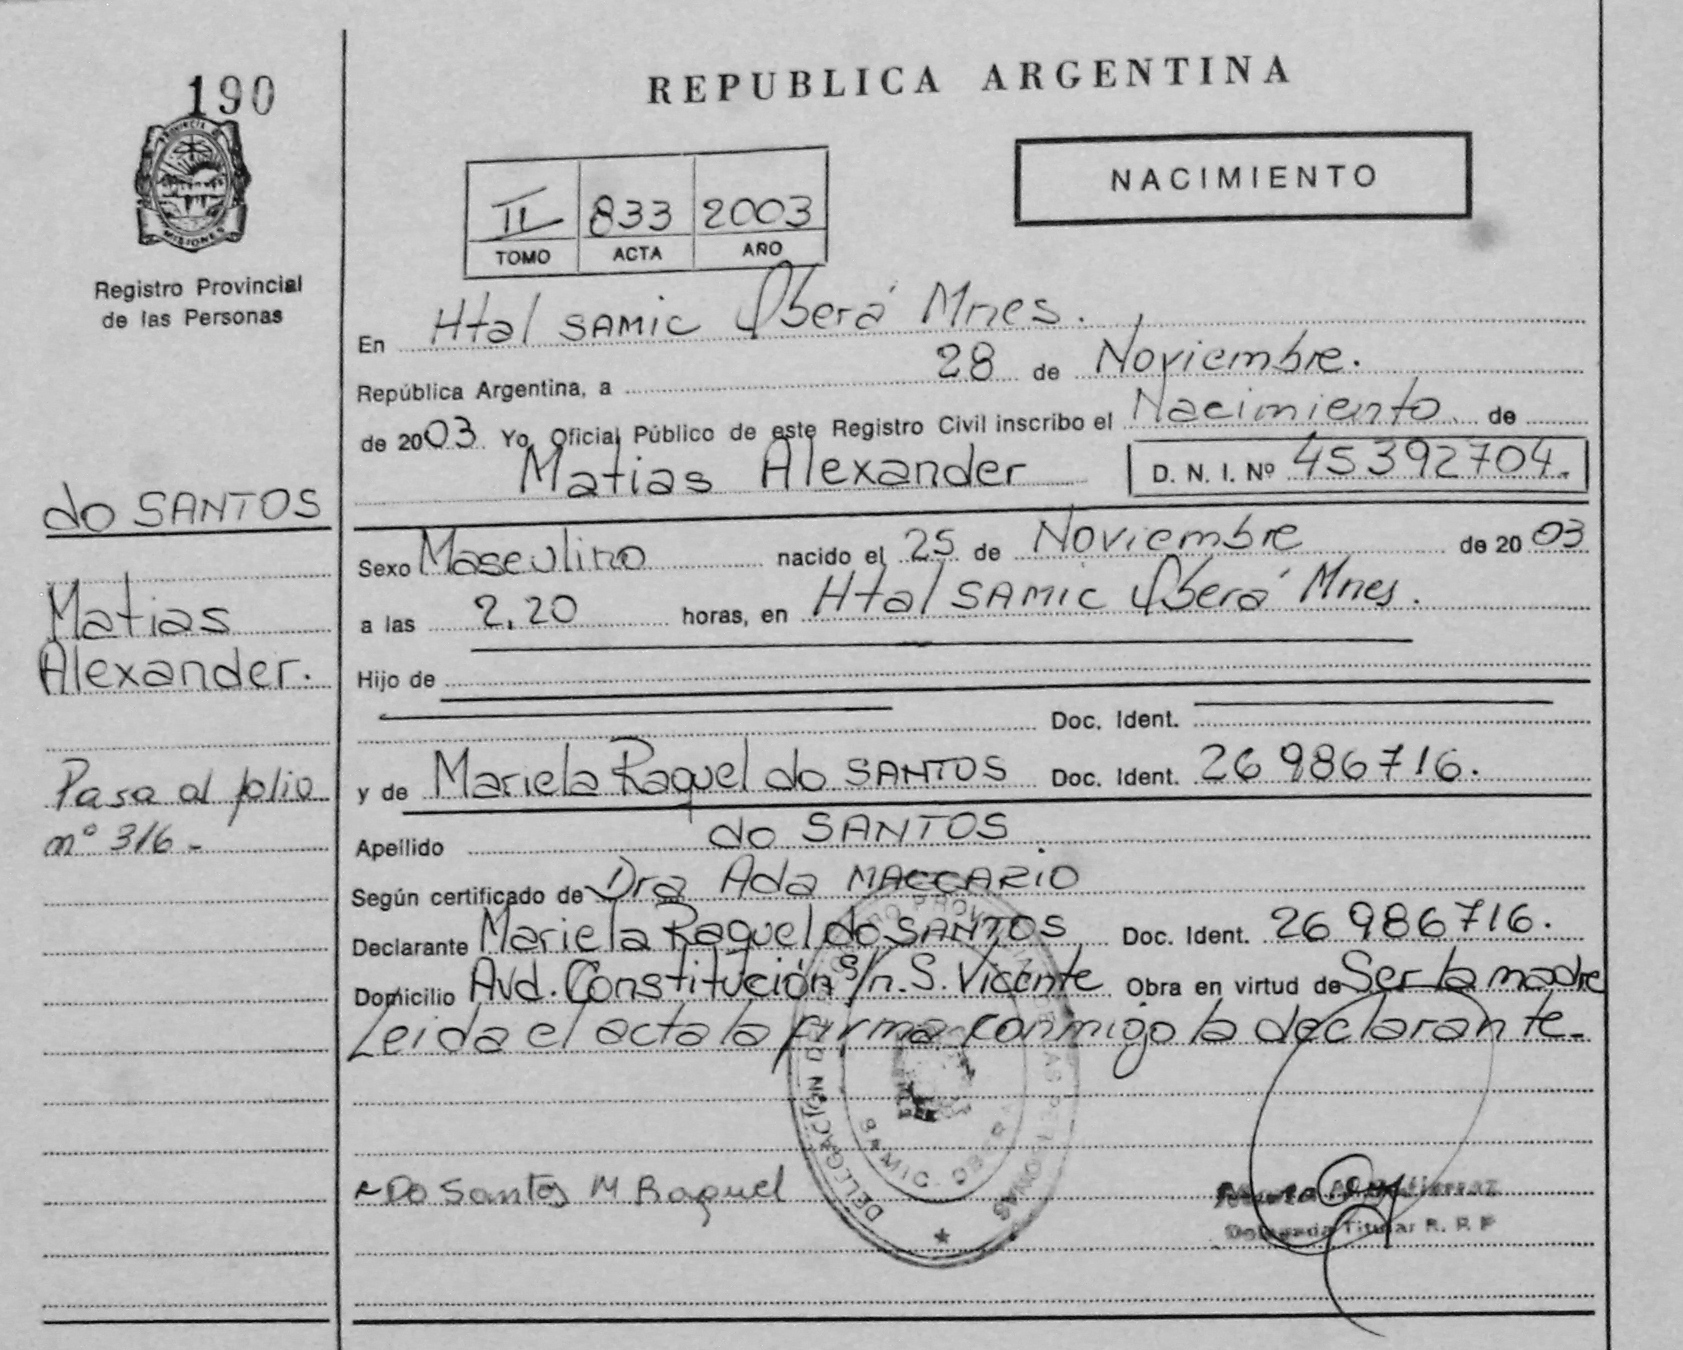 190
PROVINCIA DE
MISIONES
Registro Provincial
de las Personas
do SANTOS
Matias
Alexander.
Pasa al folio
nº 316-
REPUBLICA ARGENTINA
NACIMIENTO
II 833 2003
TOMO ACTA AÑO
En Htal SAMIC Oberá Mnes.
República Argentina, a 28 de Noviembre.
de 2003. Yo, Oficial Público de este Registro Civil inscribo el Nacimiento de
Matias Alexander D. N. I. Nº 45392704.
Sexo Masculino nacido el 25 de Noviembre de 2003
a las 2,20 horas, en Htal SAMIC Oberá Mnes.
Hijo de
Doc. Ident.
y de Mariela Raquel do SANTOS Doc. Ident. 26986716.
Apellido do SANTOS
Según certificado de Dra Ada MACCARIO
Declarante Mariela Raquel do SANTOS Doc. Ident. 26986716.
Domicilio Avd. Constitución s/n. S. Vicente Obra en virtud de Ser la madre
Leida el acta la firma conmigo la declarante.
Do Santos M Raquel
Gutierrez
Delegada Titular R. P. P
DELEGACION
SAMIC OBERA